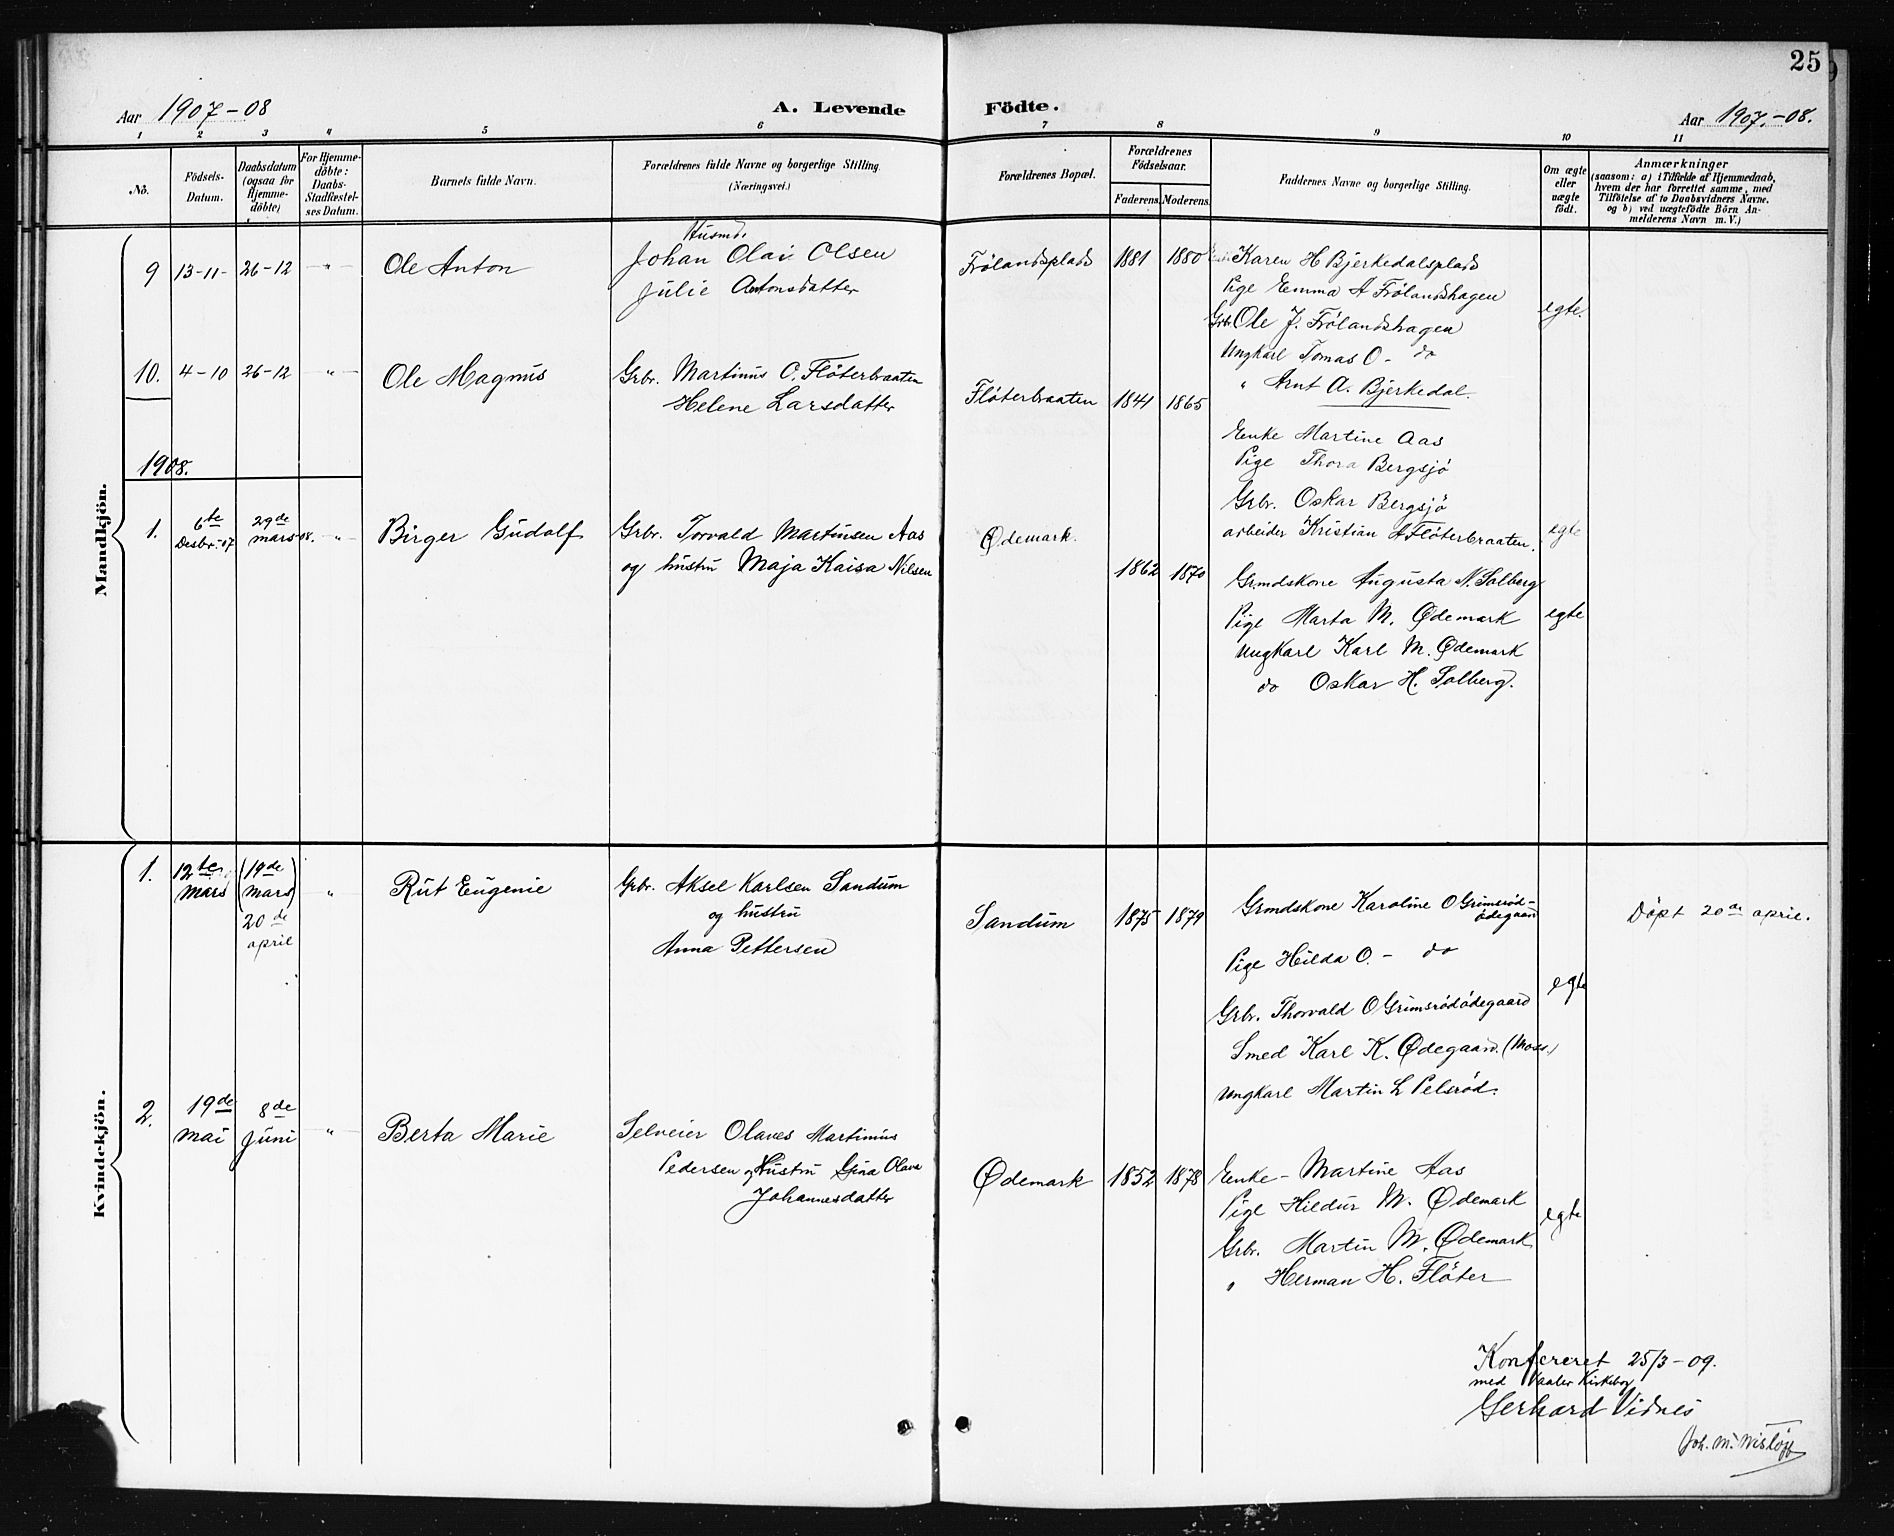 25
Aar 1907-08
A. Levende Födte.
Aar 1907.-08.
1 2 3 4 5 6 7 8 9 10 11
No.
Födsels-Datum.
Daabsdatum (ogsaa for Hjemme-döbte)
For Hjemme-döbte: Daabs-Stadfæstel-ses Datum.
Barnets fulde Navn.
Forældrenes fulde Navne og borgerlige Stilling (Næringsvei.)
Forældrenes Bopæl.
Forældrenes Födselsaar.
Faderens. Moderens.
Faddernes Navne og borgerlige Stilling.
Om ægte eller uægte födt.
Anmærkninger
(saasom: a) i Tilfælde af Hjemmedaab,
hvem der har forrettet samme, med
Tilföielse af to Daabsvidners Navne.
og b) ved uægtefödte Börn An-
melderens Navn m. V.)
Mandkjön.
9 13-11- 26-12 -"- Ole Anton
Husmd.
Johan Olai Olsen
Julie Antonsdatter
Frölandsplads 1881 1880
Karen H Bjerkedalsplads
Pige Emma A Frölandshagen
Grbr. Ole J. Frölandshagen
Ungkarl Tomas O - do
" Arnt A. Bjerkedal.
egte.
10. 4-10 26-12 -"- Ole Magnus
Grbr. Martinus O. Flöterbraaten
Helene Larsdatter
Flöterbraaten 1841 1865
Enke Martine Aas
Pige Thora Bergsjö
Grbr. Oskar Bergsjö
arbeider Kristian A Flöterbraaten.
egte
1908.
1. 6te Desbr.-07 29de mars 08. -"- Birger Gudolf
Grbr. Torvald Martinsen Aas
og hustru Maja Kaisa Nilsen
Ødemark. 1862 1870
Grmdskone Augusta N. Solberg
Pige Marta M. Ødemark
Ungkarl Karl M. Ødemark
do Oskar H. Solberg.
egte
Kvindekjön.
1. 12te mars (19de mars) 20de april " Rut Eugenie
Grbr. Aksel Karlsen Sandum
og hustru
Anna Pettersen
Sandum 1875 1879
Grmdskone Karoline O Grimsrød-
ödegaard
Pige Hilda O. - do
Grbr. Thorvald O Grimsrödödegaard
Smed Karl K. Ødegaard. (Moss.)
Ungkarl Martin L Pelsröd.
egte
Döpt 20de april.
2. 19de mai 8de juni -"- Berta Marie
Selveier Olaves Martinius
Pedersen og Hustru Gina Olava
Johannesdatter
Ødemark 1852 1878
Enke - Martine Aas
Pige Hildur M. Ødemark
Grbr. Martin M. Ødemark
" Herman H. Flöter
egte
Konfereret 25/3-09.
med Vaaler Kirkebog
Gerhard Vidnes
Joh. M.